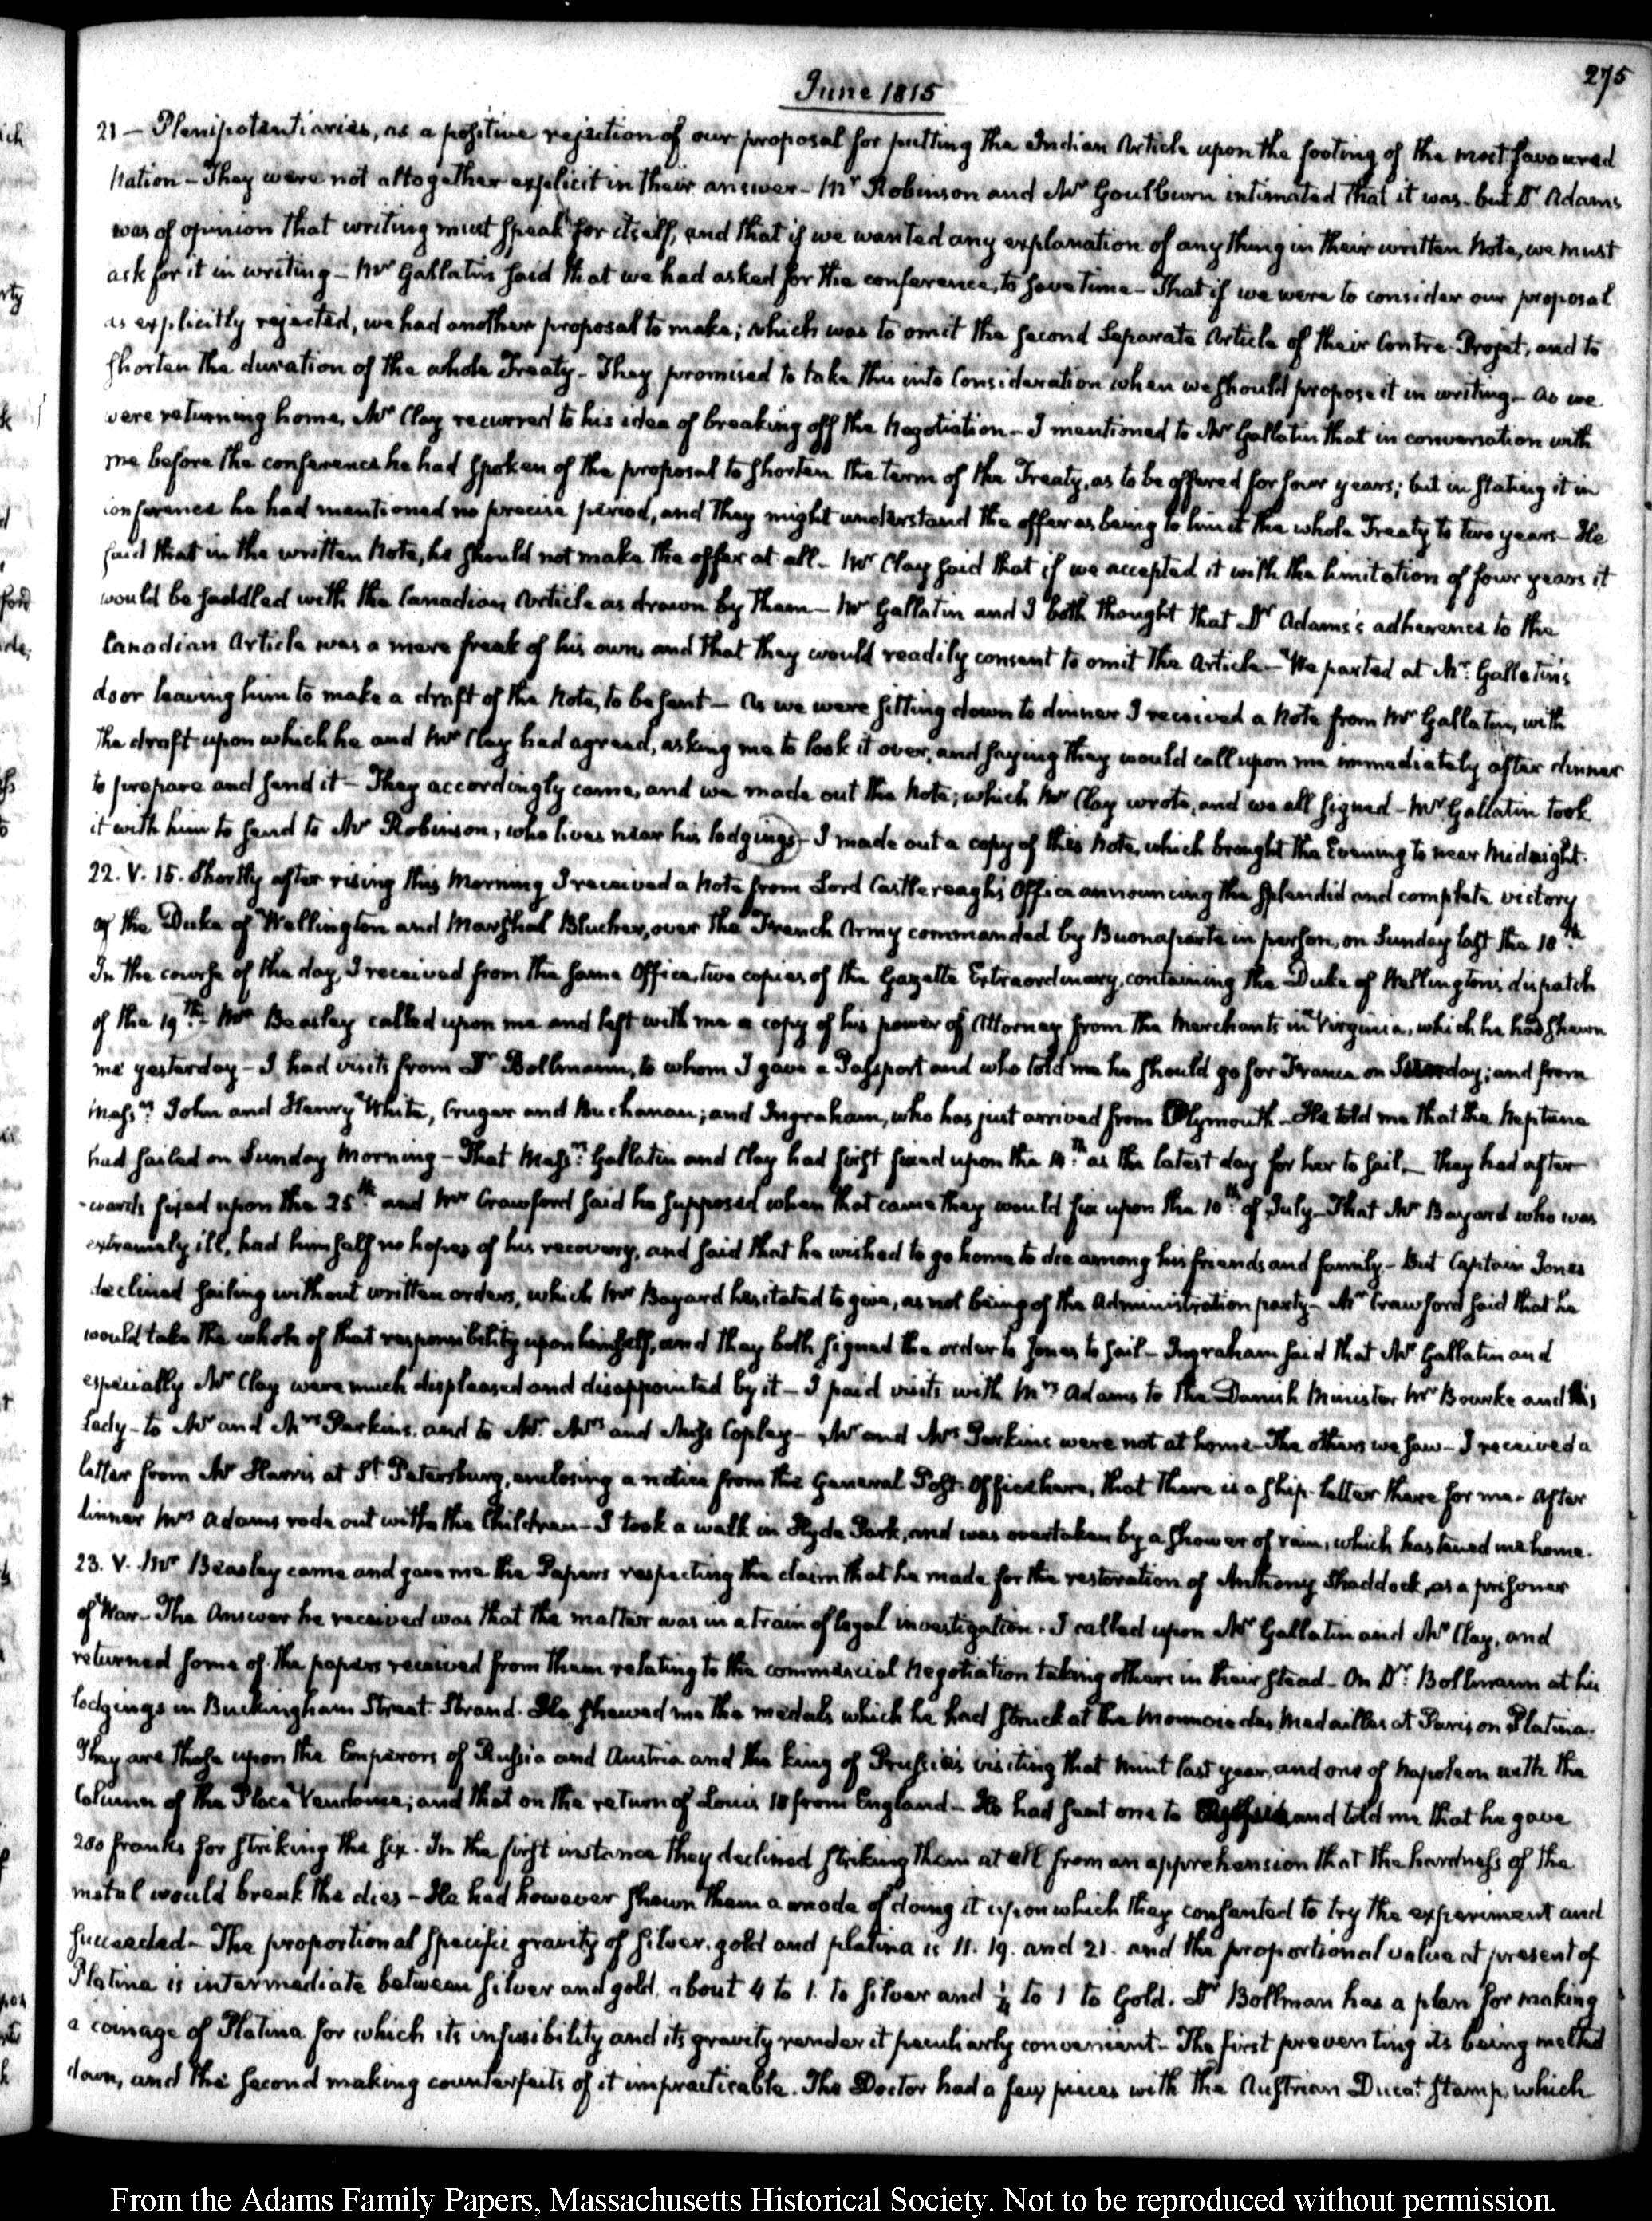 275
June 1815
21 — Plenipotentiaries, as a positive rejection of our proposal for putting the Indian Article upon the footing of the most favoured
Nation — They were not altogether explicit in their answer — Mr Robinson and Mr Goulburn intimated that it was. but Dr Adams
was of opinion that writing must speak for itself, and that if we wanted any explanation of any thing in their written Note, we must
ask for it in writing — Mr Gallatin said that we had asked for the conference, to save time — That if we were to consider our proposal
as explicitly rejected, we had another proposal to make; which was to omit the second Separate Article of their Contre-Projet, and to
shorten the duration of the whole Treaty — They promised to take this into Consideration when we should propose it in writing — As we
were returning home, Mr Clay recurred to his idea of breaking off the Negotiation — I mentioned to Mr Gallatin that in conversation with
me before the conference he had spoken of the proposal to shorten the term of the Treaty, as to be offered for four years; but in stating it in
conference he had mentioned no precise period, and they might understand the offer as being to limit the whole Treaty to two years — He
said that in the written Note, he should not make the offer at all — Mr Clay said that if we accepted it with the limitation of four years it
would be saddled with the Canadian Article as drawn by them — Mr Gallatin and I both thought that Dr Adams's adherence to the
Canadian Article was a mere freak of his own, and that they would readily consent to omit the Article — We parted at Mr. Gallatin's
door leaving him to make a draft of the Note, to be sent — As we were sitting down to dinner I received a Note from Mr Gallatin, with
the draft upon which he and Mr Clay had agreed, asking me to look it over, and saying they would call upon me immediately after dinner
to prepare and send it — They accordingly came, and we made out the Note; which Mr Clay wrote, and we all signed — Mr Gallatin took
it with him to send to Mr Robinson, who lives near his lodgings — I made out a copy of this Note, which brought the Evening to near Midnight.
22. V. 15. Shortly after rising this Morning I received a Note from Lord Castlereagh's Office announcing the splendid and complete victory
of the Duke of Wellington and Marshal Blucher, over the French Army commanded by Buonaparte in person, on Sunday last the 18th
In the course of the day, I received from the same Office, two copies of the Gazette Extraordinary, containing the Duke of Wellington's dispatch
of the 19th — Mr Beasley called upon me and left with me a copy of his power of Attorney from the Merchants in Virginia, which he had shewn
me yesterday — I had visits from Dr Bollmann, to whom I gave a Passport and who told me he should go for France on day; and from
Messrs John and Henry White, Cruger and Buchanan; and Ingraham, who has just arrived from Plymouth — He told me that the Neptune
had sailed on Sunday Morning — That Messrs Gallatin and Clay had first fixed upon the th as the latest day for her to sail — they had after-
-wards fixed upon the 25th and Mr Crawford said he supposed when that came they would fix upon the 10th of July — That Mr Bayard who was
extremely ill, had himself no hopes of his recovery, and said that he wished to go home to die among his friends and family — But Captain Jones
declined sailing without written orders, which Mr Bayard hesitated to give, as not being of the Administration party — Mr Crawford said that he
would take the whole of that responsibility upon himself, and they both signed the order to Jones to sail — Ingraham said that Mr Gallatin and
especially Mr Clay were much displeased and disappointed by it — I paid visits with Mrs Adams to the Danish Minister Mr Bourke and his
Lady — to Mr and Mrs Perkins, and to Mr. Mrs and Miss Copley — Mr and Mrs Perkins were not at home — The others we saw — I received a
letter from Mr Harris at St Petersburg, enclosing a notice from the General Post-Office here, that there is a ship-letter there for me — After
dinner Mrs Adams rode out with the Children — I took a walk in Hyde Park, and was overtaken by a shower of rain, which hastened me home.
23. V. Mr Beasley came and gave me the Papers respecting the claim that he made for the restoration of Anthony Shaddock, as a prisoner
of War — The Answer he received was that the matter was in a train of legal investigation. I called upon Mr Gallatin and Mr Clay, and
returned some of the papers received from them relating to the commercial Negotiation taking others in their stead — On Dr. Bollmann at his
lodgings in Buckingham Street Strand. He shewed me the medals which he had struck at the Monnoie des Medailles at Paris on Platina.
They are those upon the Emperors of Russia and Austria and the king of Prussia's visiting that mint last year, and one of Napoleon with the
Column of the Place Vendome; and that on the return of Louis 18 from England — He had sent one to and told me that he gave
280 franks for striking the six. In the first instance they declined striking them at all from an apprehension that the hardness of the
metal would break the dies — He had however shewn them a mode of doing it upon which they consented to try the experiment and
succeeded — The proportional specific gravity of silver, gold and platina is 11. 19. and 21. and the proportional value at present of
Platina is intermediate between silver and gold. about 4 to 1. to silver and ¼ to 1 to Gold. Dr Bollman has a plan for making
a coinage of Platina for which its infusibility and its gravity render it peculiarly convenient — The first preventing its being melted
down, and the second making counterfeits of it impracticable. The Doctor had a few pieces with the Austrian Ducat stamp, which
From the Adams Family Papers, Massachusetts Historical Society. Not to be reproduced without permission.